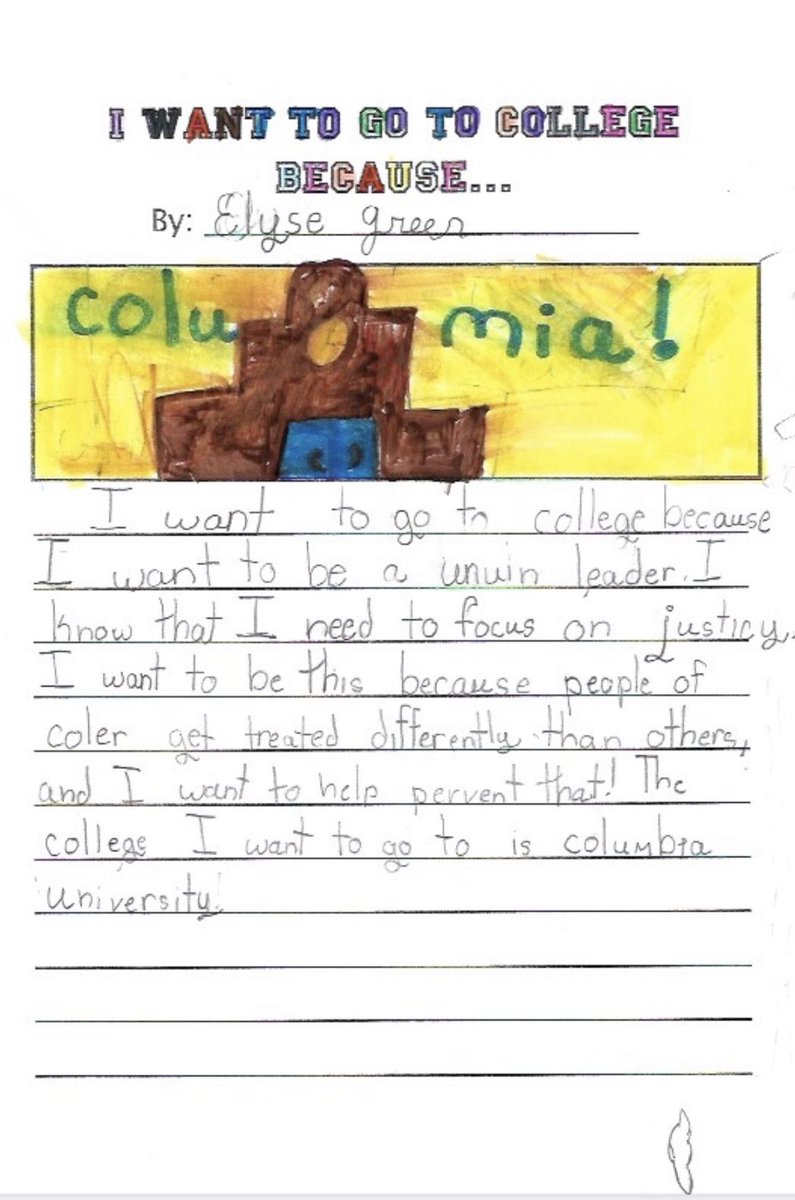 I WANT TO GO TO COLLEGE
BECAUSE...
By: Elyse green
colu mia!
I want to go to college because
I want to be a unuin leader. I
know that I need to focus on justicy.
I want to be this because people of
coler get treated differently than others,
and I want to help pervent that! The
college I want to go to is columbia
university.